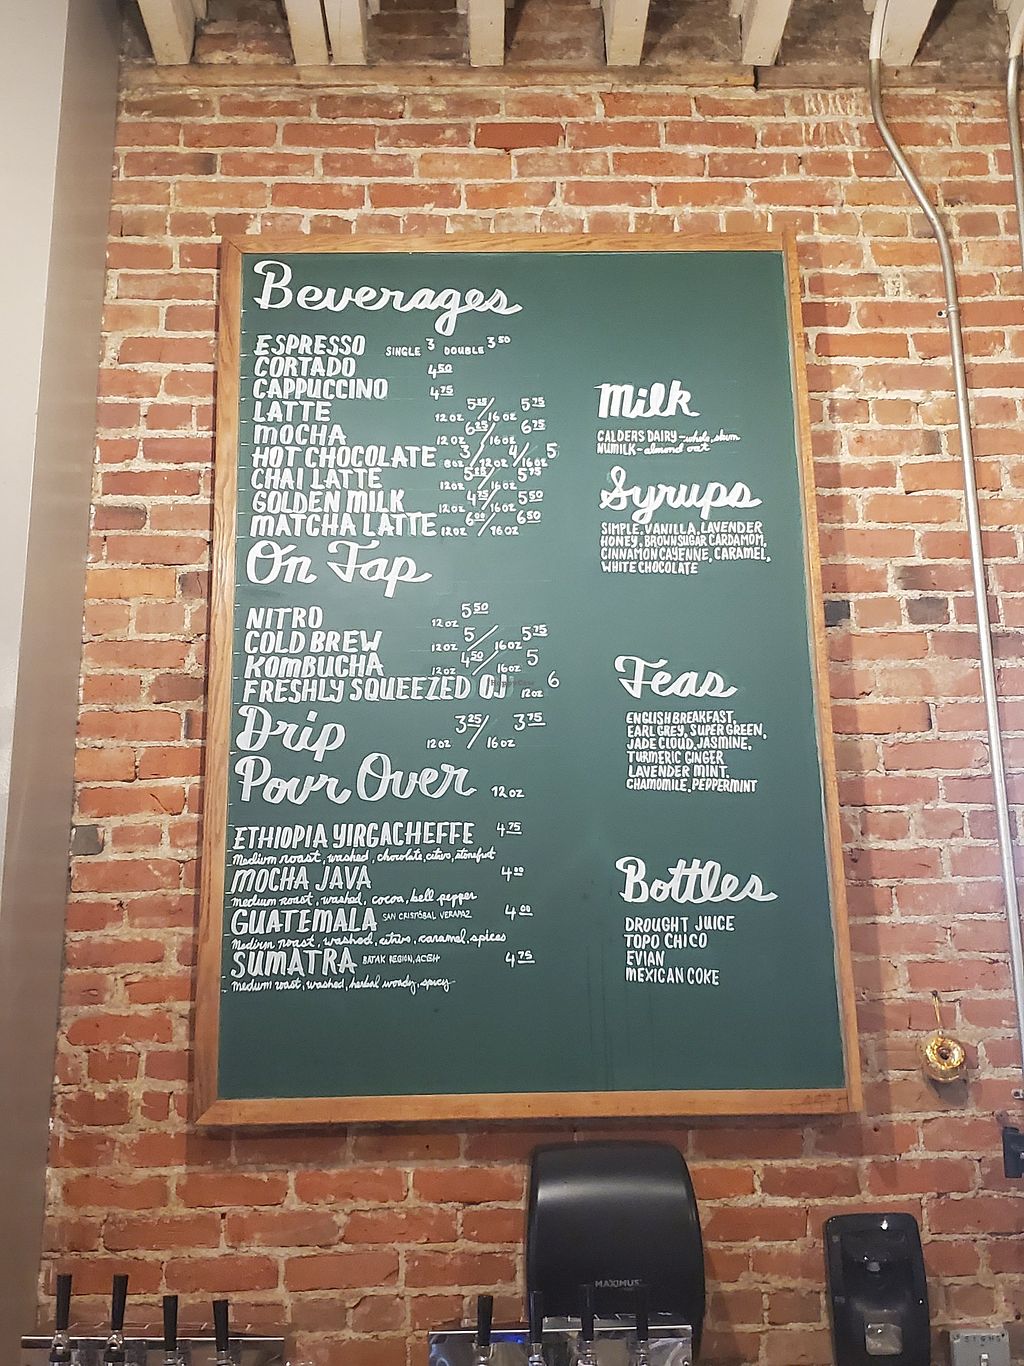 Beverages
ESPRESSO SINGLE 3 DOUBLE 3 50
CORTADO 4 50
CAPPUCCINO 4 75
LATTE 12 OZ 5 25 / 16 OZ 5 75
MOCHA 12 OZ 6 25 / 16 OZ 6 75
HOT CHOCOLATE 8 OZ 3 / 12 OZ 4 / 16 OZ 5
CHAI LATTE 12 OZ 5 25 / 16 OZ 5 75
GOLDEN MILK 12 OZ 4 75 / 16 OZ 5 50
MATCHA LATTE 12 OZ 6 00 / 16 OZ 6 50
On Tap
NITRO 12 OZ 5 50
COLD BREW 12 OZ 5 / 16 OZ 5 75
KOMBUCHA 12 OZ 4 50 / 16 OZ 5
FRESHLY SQUEEZED OJ 12 OZ 6
Drip 12 OZ 3 25 / 16 OZ 3 75
Pour Over 12 OZ
ETHIOPIA YIRGACHEFFE 4 75
Medium roast, washed, chocolate, citrus, stonefruit
MOCHA JAVA 4 00
medium roast, washed, cocoa, bell pepper
GUATEMALA SAN CRISTÓBAL VERAPAZ 4 00
Medium roast, washed, citrus, caramel, spices
SUMATRA BATAK REGION, ACEH 4 75
medium roast, washed, herbal woody, spicy
Milk
CALDERS DAIRY - whole, skim
NUMILK - almond oat
Syrups
SIMPLE, VANILLA, LAVENDER
HONEY, BROWN SUGAR CARDAMOM,
CINNAMON CAYENNE, CARAMEL,
WHITE CHOCOLATE
Teas
ENGLISH BREAKFAST,
EARL GREY, SUPER GREEN,
JADE CLOUD, JASMINE,
TURMERIC GINGER
LAVENDER MINT,
CHAMOMILE, PEPPERMINT
Bottles
DROUGHT JUICE
TOPO CHICO
EVIAN
MEXICAN COKE
MAXIMUS